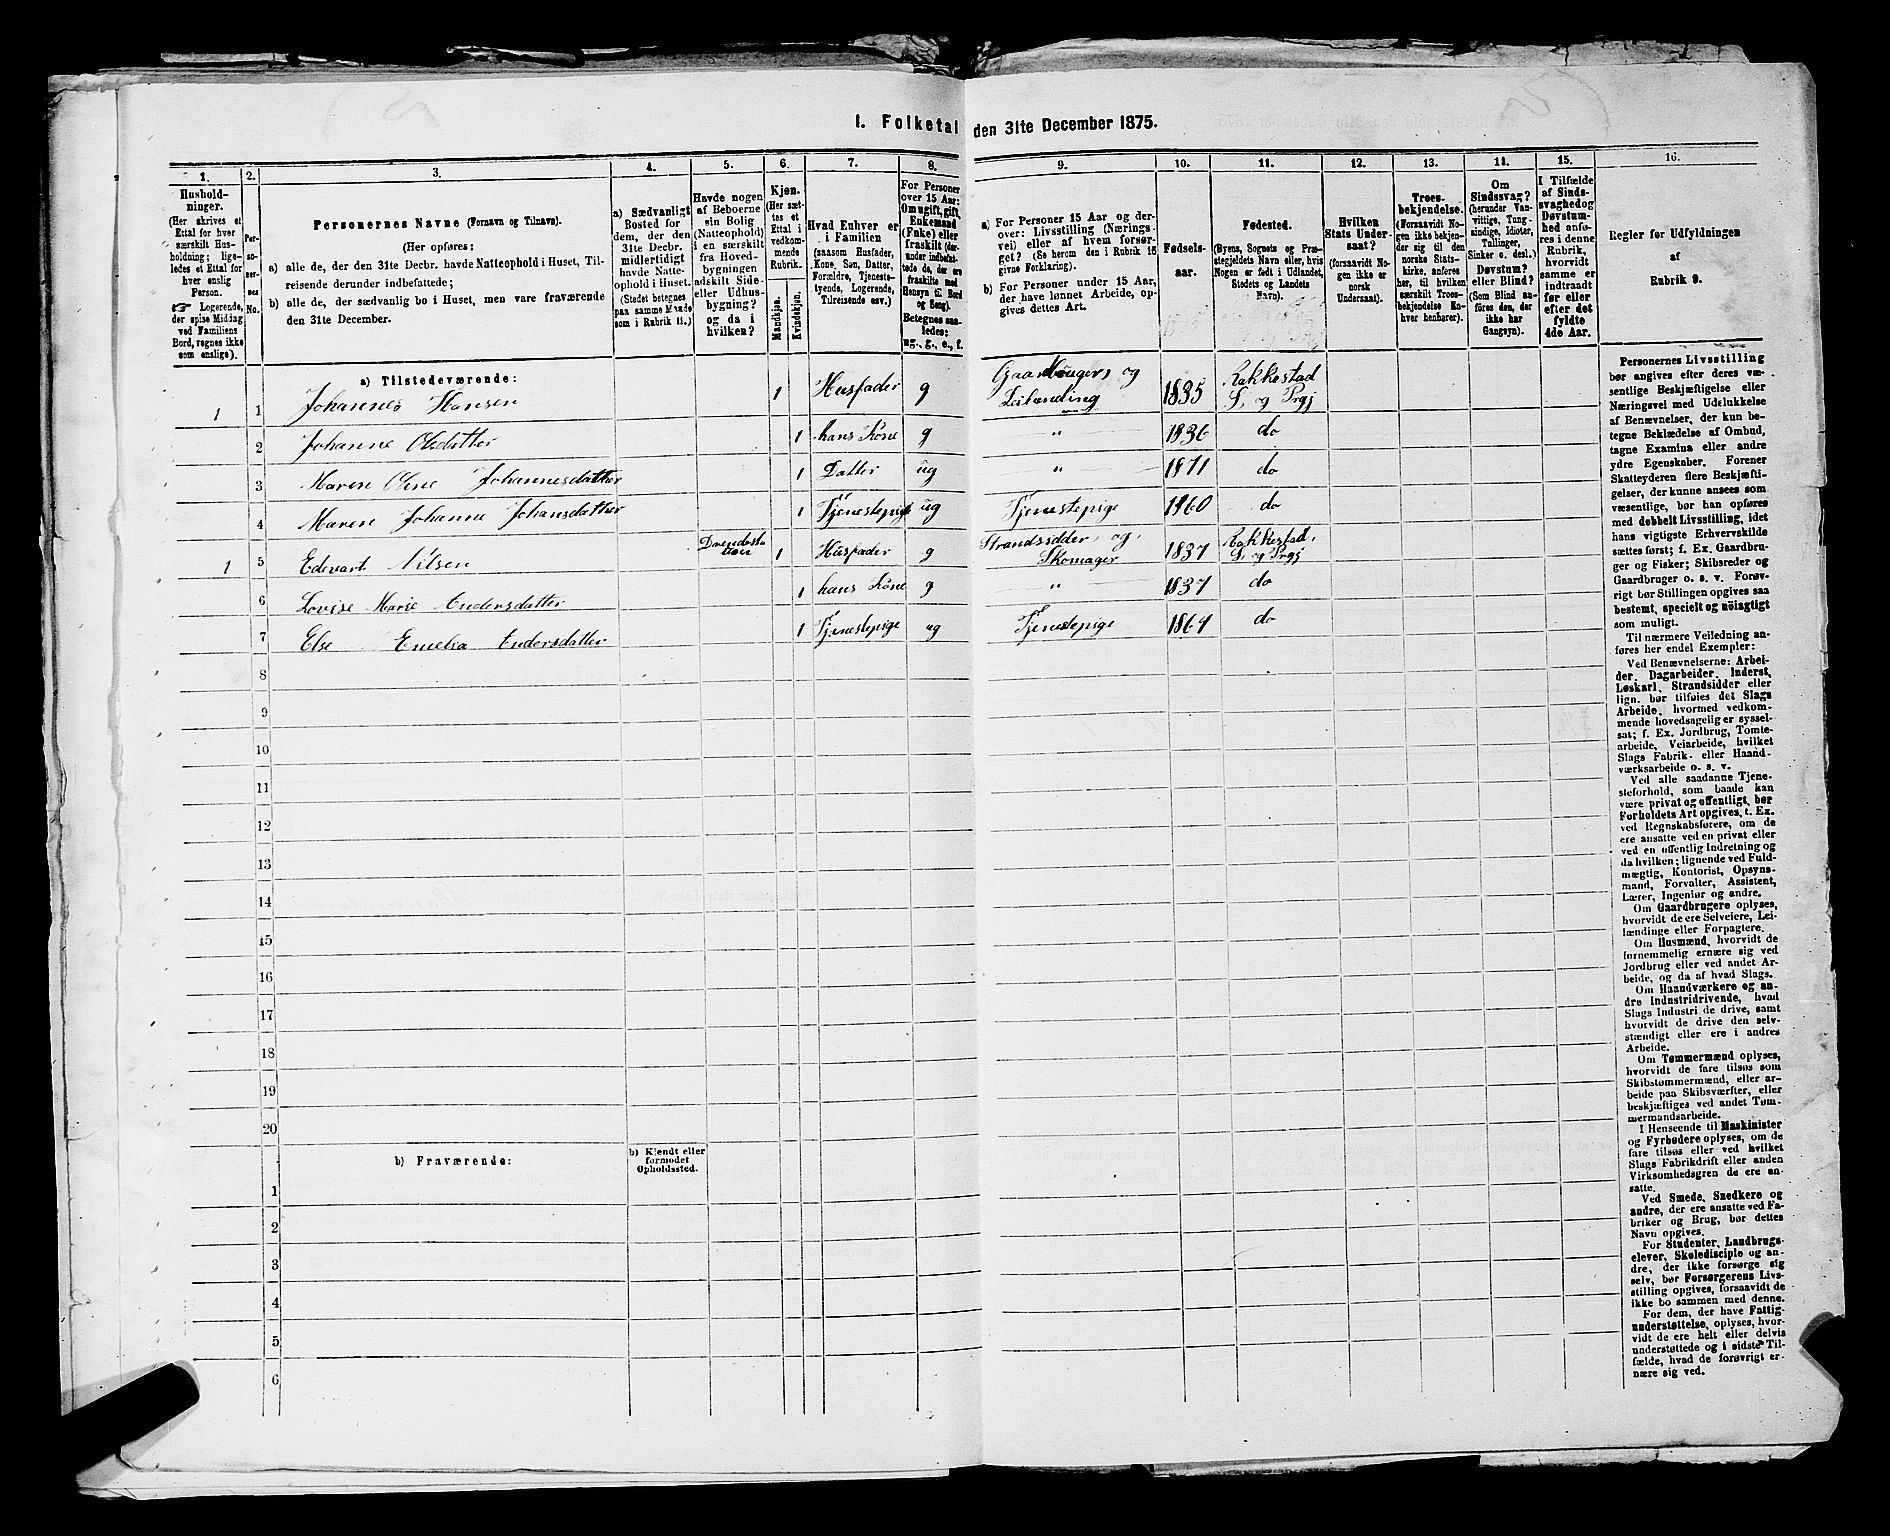 I. Folketal den 31te December 1875.
1.
Hushold-
ninger.
(Her skrives et
Ettal for hver
særskilt Hus-
holdning; lige-
ledes et Ettal for
hver enslig
Person.
☞ Logerende,
der spise Middag
ved Familiens
Bord, regnes ikke
som enslige).
2.
Per-
so-
ner-
nes
No.
3.
Personernes Navne (Fornavn og Tilnavn).
(Her opføres:
a) alle de, der den 31te Decbr. havde Natteophold i Huset, Til-
reisende derunder indbefattede;
b) alle de, der sædvanlig bo i Huset, men vare fraværende
den 31te December.
4.
a) Sædvanligt
Bosted for
dem, der den
31te Decbr.
midlertidigt
havde Natte-
ophold i Huset.
(Stedet betegnes
paa samme Maade
som i Rubrik 11.)
5.
Havde nogen
af Beboerne
sin Bolig
(Natteophold)
i en særskilt
fra Hoved-
bygningen
adskilt Side-
eller Udhus-
bygning?
og da i
hvilken?
6.
Kjøn.
(Her sæt-
tes et
Ettal i
vedkom-
mende
Rubrik.
Mandkjøn.
Kvindekjøn.
7.
Hvad Enhver er
i Familien
(saasom Husfader,
Kone, Søn, Datter,
Forældre, Tjeneste-
tyende, Logerende,
Tilreisende osv.)
8.
For Personer
over 15 Aar:
Om ugift, gift,
Enkemand
(Enke) eller
fraskilt (der-
under indbefat-
tede de, der ere
fraskilte med
Hensyn til Bord
og Seng).
Betegnes saa-
ledes:
ug., g., e., f.
9.
a) For Personer 15 Aar og der-
over: Livsstilling (Nærings-
vei) eller af hvem forsør-
get? (Se herom den i Rubrik 16
givne Forklaring).
b) For Personer under 15 Aar,
der have lønnet Arbeide, op-
gives dettes Art.
10.
Fødsels-
aar.
11.
Fødested.
(Byens, Sognets og Præ-
stegjeldets Navn eller, hvis
Nogen er født i Udlandet,
Stedets og Landets
Navn).
12.
Hvilken
Stats Under-
saat?
(forsaavidt No-
gen ikke er
norsk
Undersaat).
13.
Troes-
bekjendelse.
(Forsaavidt No-
gen ikke bekjen-
der sig til den
norske Stats-
kirke, anføres
her, til hvilken
særskilt Troes-
bekjendelse En-
hver henhører).
14.
Om
Sindssvag?
(herunder Van-
vittige, Tung-
sindige, Idioter,
Tullinger,
Sinker o. desl.)
Døvstum?
eller Blind?
(Som Blind an-
føres den, der
ikke har
Gangsyn).
15.
I Tilfælde
af Sinds-
svaghed og
Døvstum-
hed anfø-
res i denne
Rubrik,
hvorvidt
samme er
indtraadt
før eller
efter det
fyldte
4de Aar.
16.
Regler for Udfyldningen
af
Rubrik 9.
a) Tilstedeværende:
1 1 Johannes Hansen 1 Husfader g Gaardbruger og Leilænding 1835 Rakkestad S. og Prgj
2 Johanne Olsdatter 1 hans Kone g " 1836 do
3 Maren Oline Johannesdatter 1 Datter ug " 1871 do
4 Maren Johanne Johansdatter 1 Tjenestepige ug Tjenestepige 1860 do
1 5 Edevart Nilsen 1 Husfader g Strandsidder og Skomager 1837 Rakkestad S. og Prgj
6 Lovise Marie Andersdatter 1 hans Kone g " 1837 do
7 Else Emelia Andersdatter 1 Tjenestepige ug Tjenestepige 1864 do
8
9
10
11
12
13
14
15
16
17
18
19
20
b) Fraværende:
b) Kjendt eller
formodet
Opholdssted.
1
2
3
4
5
6
Personernes Livsstilling
bør angives efter deres væ-
sentlige Beskjæftigelse eller
Næringsvei med Udelukkelse
af Benævnelser, der kun be-
tegne Beklædelse af Ombud,
tagne Examina eller andre
ydre Egenskaber. Forener
Skatteyderen flere Beskjæfti-
gelser, der kunne ansees som
væsentlige, bør han opføres
med dobbelt Livsstilling, idet
hans vigtigste Erhvervskilde
sættes først; f. Ex. Gaardbru-
ger og Fisker; Skibsreder og
Gaardbruger o. s. v. Forøv-
rigt bør Stillingen opgives saa
bestemt, specielt og nöiagtigt
som muligt.
Til nærmere Veiledning an-
føres her endel Exempler:
Ved Benævnelserne: Arbei-
der, Dagarbeider, Inderst,
Løskarl, Strandsidder eller
lign. bør tilføies det Slags
Arbeide, hvormed vedkom-
mende hovedsagelig er syssel-
sat; f. Ex. Jordbrug, Tomte-
arbeide, Veiarbeide, hvilket
Slags Fabrik- eller Haand-
værksarbeide o. s. v.
Ved alle saadanne Tjene-
steforhold, som baade kan
være privat og offentligt, bør
Forholdets Art opgives, t. Ex.
ved Regnskabsførere, om de
ere ansatte ved en privat eller
ved en offentlig Indretning og
da hvilken; lignende ved Fuld-
mægtig, Kontorist, Opsyns-
mand, Forvalter, Assistent,
Lærer, Ingeniør og andre.
Om Gaardbrugere oplyses,
hvorvidt de ere Selveiere, Lei-
lændinge eller Forpagtere.
Om Husmænd, hvorvidt de
fornemmelig ernære sig ved
Jordbrug eller ved andet Ar-
beide, og da af hvad Slags.
Om Haandværkere og an-
dre Industridrivende, hvad
Slags Industri de drive, samt
hvorvidt de drive den selv-
stændigt eller ere i andres
Arbeide.
Om Tømmermænd oplyses,
hvorvidt de fare tilsøs som
Skibstømmermænd, eller ar-
beide paa Skibsværfter, eller
beskjæftiges ved andet Tøm-
mermandsarbeide.
I Henseende til Maskinister
og Fyrbødere oplyses, om de
fare tilsøs eller ved hvilket
Slags Fabrikdrift eller anden
Virksomhedsgren de ere an-
satte.
Ved Smede, Snedkere og
andre, der ere ansatte ved Fa-
briker og Brug, bør dettes
Navn opgives.
For Studenter, Landbrugs-
elever, Skoledisciple og an-
dre, der ikke forsørge sig
selv, bør Forsørgerens Livs-
stilling opgives, forsaavidt de
ikke bo sammen med denne.
For dem, der have Fattig-
understøttelse, oplyses, hvor-
vidt de ere helt eller delvis
understøttede og i sidste Til-
fælde, hvad de forøvrigt er-
nære sig ved.